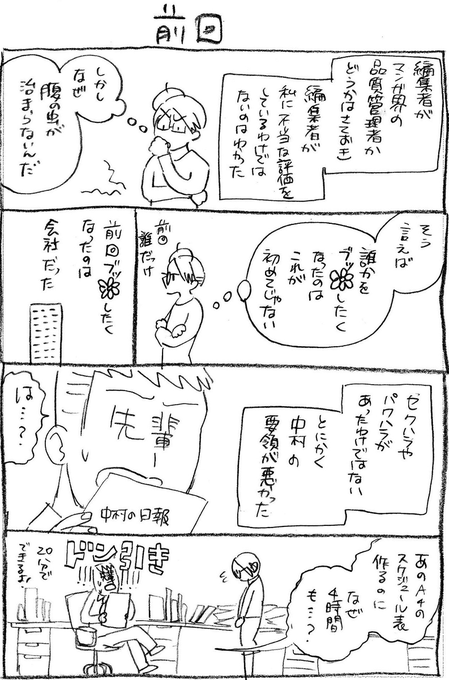 前回
編集者が
マンガ界の
品質管理者か
どうかはさておき
編集者が
私に不当な評価を
しているわけでは
ないのはわかった
しかし
なぜ
腹の虫が
治まらないんだ
そう
言えば
誰かを
ブッ したく
なったのは
これが
初めてじゃない
前回
誰だっけ
前回ブッ したく
なったのは
会社だった
セクハラや
パワハラが
あったわけではない
とにかく
中村の
要領が悪かった
先輩
は…?
中村の日報
あのA4の
スケジュール表
作るのに
なぜ
4時間
も…?
ドン引き
20分で
できるよ